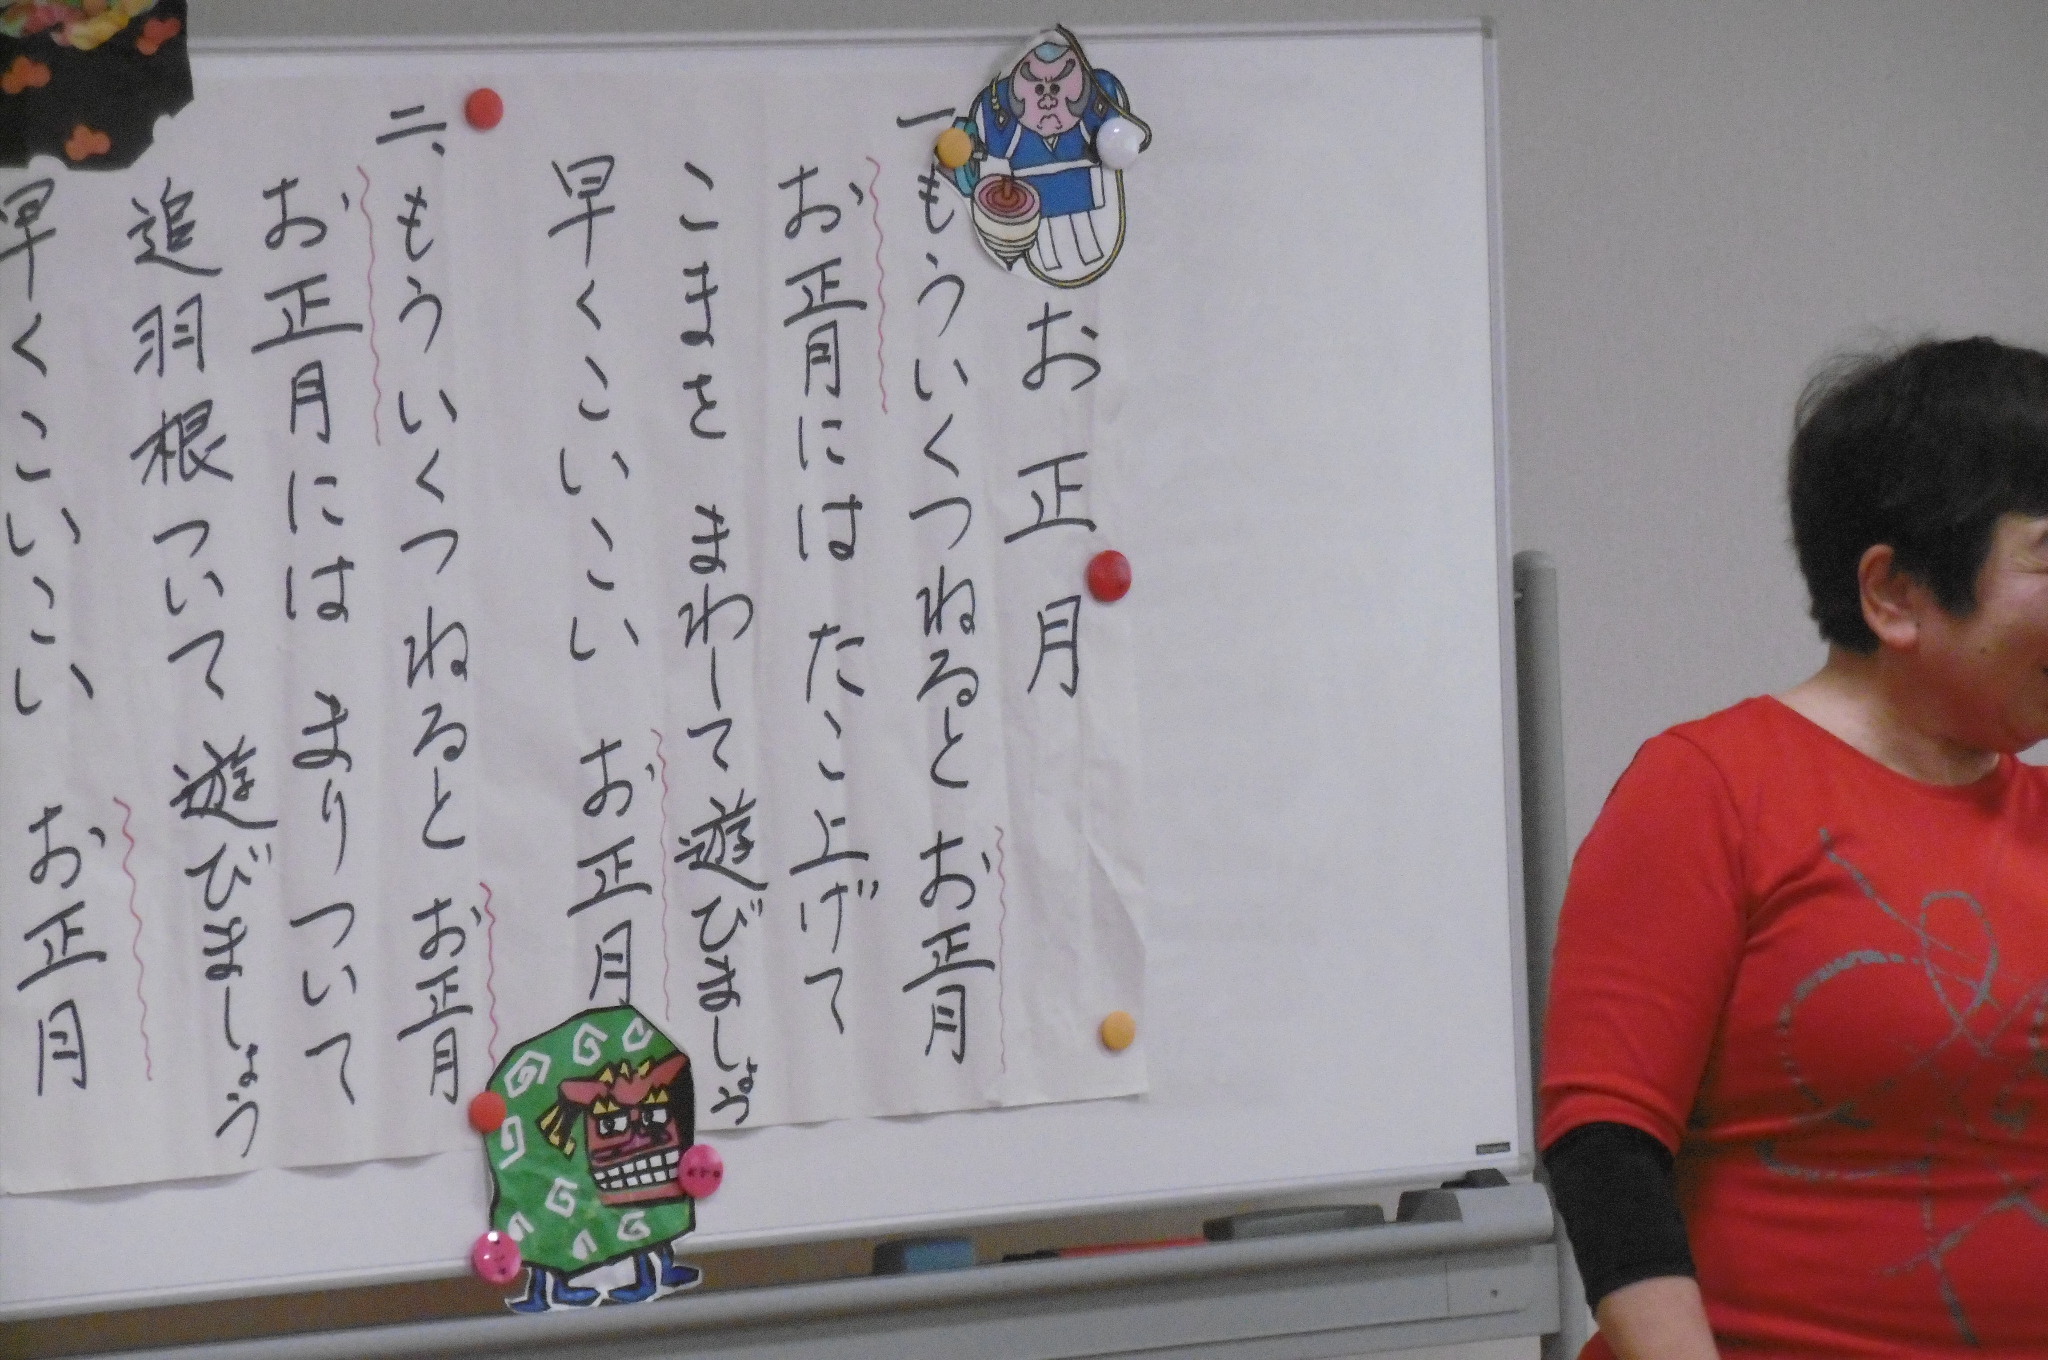 お正月
一 もういくつねると お正月
お正月には たこ上げて
こまを まわして 遊びましょう
早くこいこい お正月
二、もういくつねると お正月
お正月には まりついて
追羽根ついて 遊びましょう
早くこいこい お正月